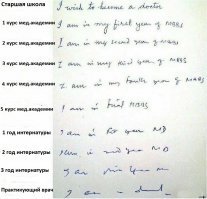 Старшая школа I wish to become a doctor
1 курс мед.академии I am in my first year of MBBS
2 курс мед.академии I am in my second year of MBBS
3 курс мед.академии I am in my third year of MBBS
4 курс мед.академии I am in my fourth year of MBBS
5 курс мед.академии I am in final MBBS
1 год интернатуры I am in 1st year MD
2 год интернатуры I am in 2nd year MD
3 год интернатуры I am
Практикующий врач I am